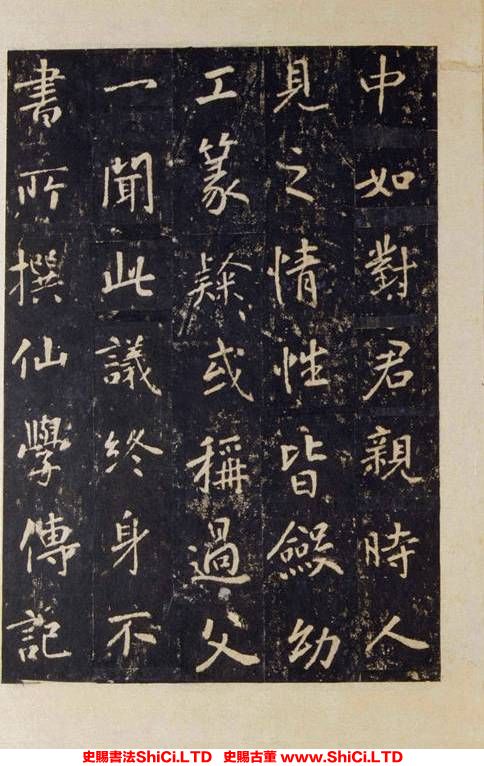 中如對君親時人
見之情性皆斂幼
工篆𨽻或稱過父
一聞此議終身不
書所撰仙學傳記
史賜書法ShiCi.LTD 史賜古董 www.ShiCi.LTD